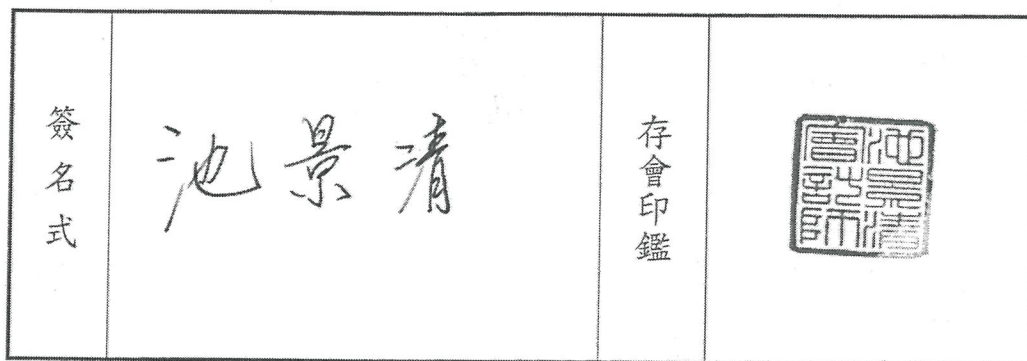 簽名式
池景清
存會印鑑
池景清會計師